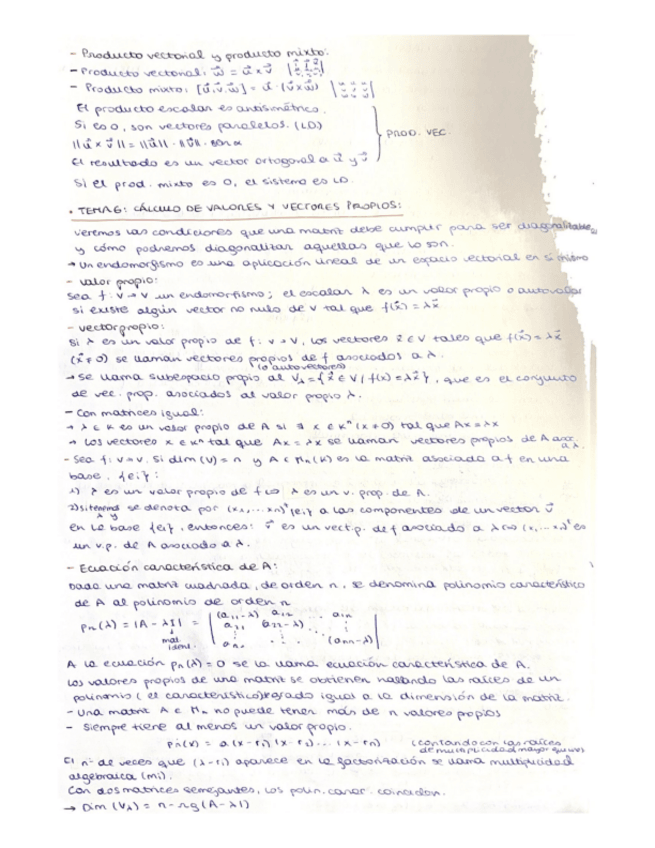 - Producto vectorial y producto mixto:
- Producto vectorial: w⃗ = u⃗ × v⃗
- Producto mixto: [u⃗,v⃗,w⃗] = u⃗ · (v⃗×w⃗)
El producto escalar es antisimétrico.
Si es 0, son vectores paralelos. (LD)
||u⃗ × v⃗|| = ||u⃗|| · ||v⃗|| · sen α
PROD. VEC.
El resultado es un vector ortogonal a u⃗ y v⃗
Si el prod. mixto es 0, el sistema es LD.
• TEMA 6: CÁLCULO DE VALORES Y VECTORES PROPIOS:
Veremos las condiciones que una matriz debe cumplir para ser diagonalizable,
y cómo podremos diagonalizar aquellas que lo son.
→ Un endomorfismo es una aplicación lineal de un espacio vectorial en sí mismo
- Valor propio:
Sea f: V → V un endomorfismo; el escalar λ es un valor propio o autovalor
si existe algún vector no nulo de V tal que f(x⃗) = λx⃗
- Vector propio:
Si λ es un valor propio de f: V → V, los vectores x⃗ ∈ V tales que f(x⃗) = λx⃗
(x⃗ ≠ 0) se llaman vectores propios de f asociados a λ.
(o autovectores)
→ Se llama subespacio propio al Vλ = {x⃗ ∈ V / f(x) = λx⃗}, que es el conjunto
de vec. prop. asociados al valor propio λ.
- Con matrices igual:
→ λ ∈ K es un valor propio de A si ∃ x ∈ Kⁿ (x ≠ 0) tal que Ax = λx
→ Los vectores x ∈ Kⁿ tal que Ax = λx se llaman vectores propios de A asoc.
a λ.
- Sea f: V → V. Si dim(V) = n y A ∈ Mn(K) es la matriz asociada a f en una
base {ei}:
1) λ es un valor propio de f ⇔ λ es un v. prop. de A.
2) si se denota por (x1, ... xn)ᵗ {ei} a las componentes de un vector v⃗
en la base {ei}, entonces: v⃗ es un vect.p. de f asociado a λ ⇔ (x, ... x2)ᵗ es
un v.p. de A asociado a λ.
- Ecuación característica de A:
Dada una matriz cuadrada, de orden n, se denomina polinomio característico
de A al polinomio de orden n
Pn(λ) = |A - λI| = | (a11-λ) a12 ... a1n
a21 (a22-λ) ...
an1 ... (ann-λ) |
mat.
ident.
A la ecuación pn(λ) = 0 se la llama ecuación característica de A.
Los valores propios de una matriz se obtienen hallando las raíces de un
polinomio (el característico) grado igual a la dimensión de la matriz.
- Una matriz A ∈ Mn no puede tener más de n valores propios
- Siempre tiene al menos un valor propio.
Pn(x) = a(x-r1)(x-r2)...(x-rn) (contando con las raíces
de multiplicidad mayor que uno)
El nº de veces que (λ-ri) aparece en la factorización se llama multiplicidad
algebraica (mi).
Con dos matrices semejantes, los polin. carac. coinciden.
→ Dim (Vλ) = n - rg(A - λI)